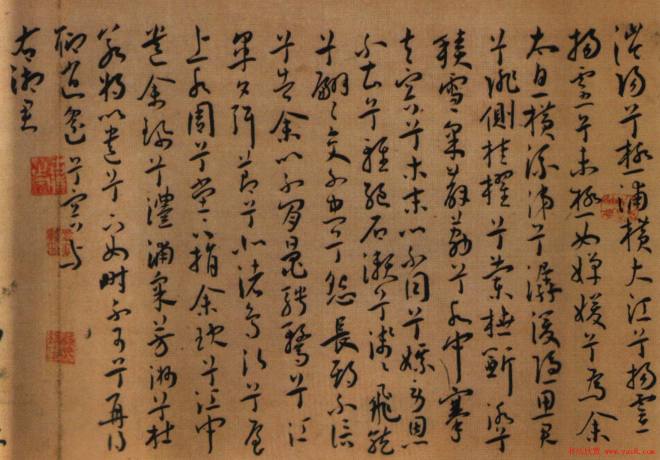 涔陽兮極浦橫大江兮揚靈
揚靈兮未極女嬋媛兮為余
太息橫流涕兮潺湲隱思君
兮陫側桂櫂兮蘭枻斲冰兮
積雪采薜荔兮水中搴
芙蓉兮木末心不同兮媒勞恩
不甚兮輕絕石瀨兮淺〻飛龍
兮翩〻交不忠兮怨長期不信
兮告余以不閒鼂騁騖兮江
皋夕弭節兮北渚鳥次兮屋
上水周兮堂下捐余玦兮江中
遺余佩兮澧浦采芳洲兮杜
若將以遺兮下女時不可兮再得
聊逍遙兮容與
右湘君
书法欣赏 www.yac8.com